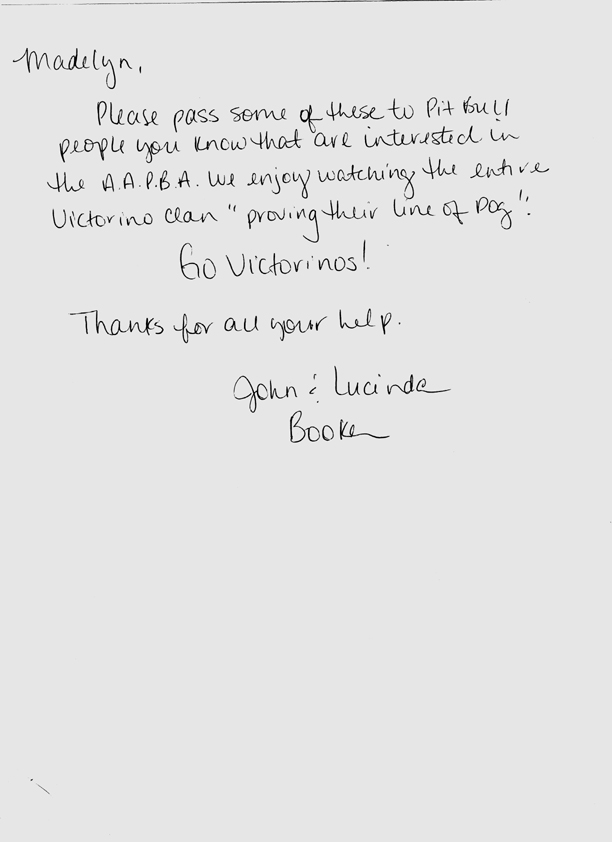 Madelyn,
Please pass some of these to Pit Bull
people you know that are interested in
the A.A.P.B.A. We enjoy watching the entire
Victorino clan "proving their line of Dog".
Go Victorinos!
Thanks for all your help.
John & Lucinda
Booker